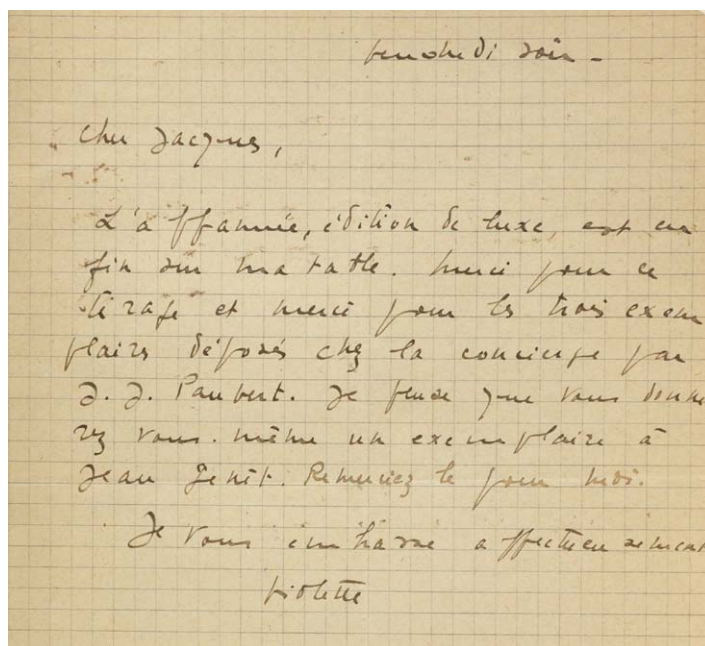 Vendredi soir -
Cher Jacques,
L'affamée, édition de luxe, est en
fin sur ma table. Merci pour ce
tirage et merci pour les trois exem
plaires déposés chez la concierge par
J. J. Pauvert. Je pense que vous donne
rez vous-même un exemplaire à
Jean Genêt. Remerciez le pour moi.
Je vous embrasse affectueusement
Violette